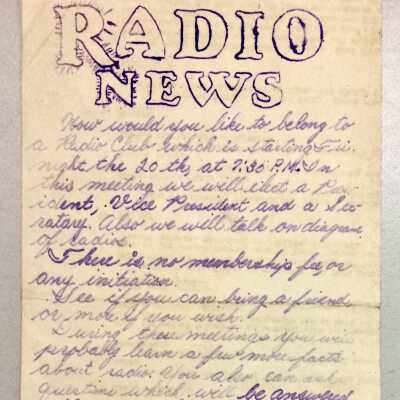 RADIO
NEWS
How would you like to belong to
a Radio Club which is starting Fri.
night the 20th, at 7:30 P.M. In
this meeting we will elect a Pres-
ident, Vice President and a Sec-
ratary. Also we will talk on diagram
of radios.
There is no membership fee, or
any initiation.
See if you can bring a friend
or more if you wish.
During these meetings you will
probably learn a few more facts
about radio. You also can ask
questions which will be answered